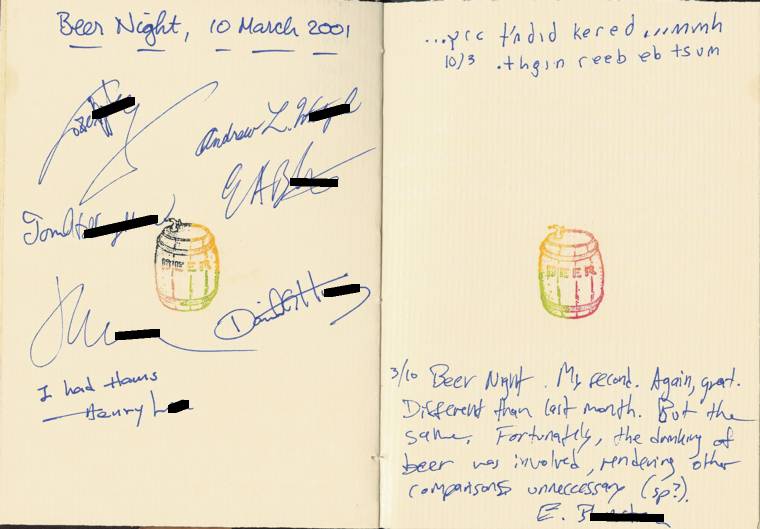 Beer Night, 10 March 2001
Andrew L.
E A B
Tom
David
I had Hams
Henry L
BEER
...yrc t'ndid kered ...mmmh
10/3 .thgin reeb eb tsum
BEER
3/10 Beer Night. My second. Again, great.
Different than last month. But the
same. Fortunately, the drinking of
beer was involved, rendering other
comparisons unneccessary (sp?).
E. B